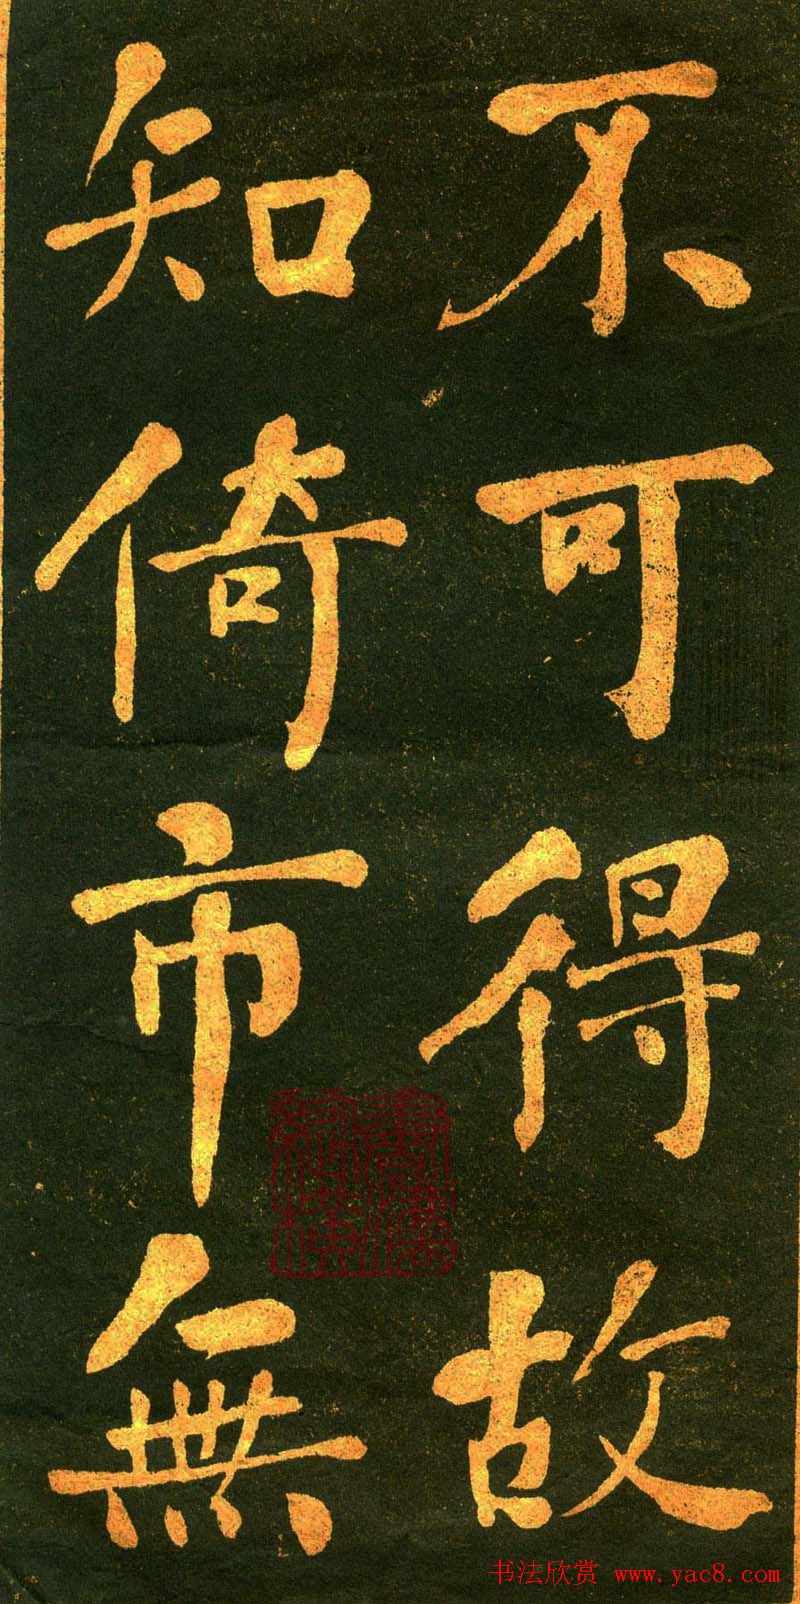 不可得故
知倚市無
书法欣赏 www.yac8.com